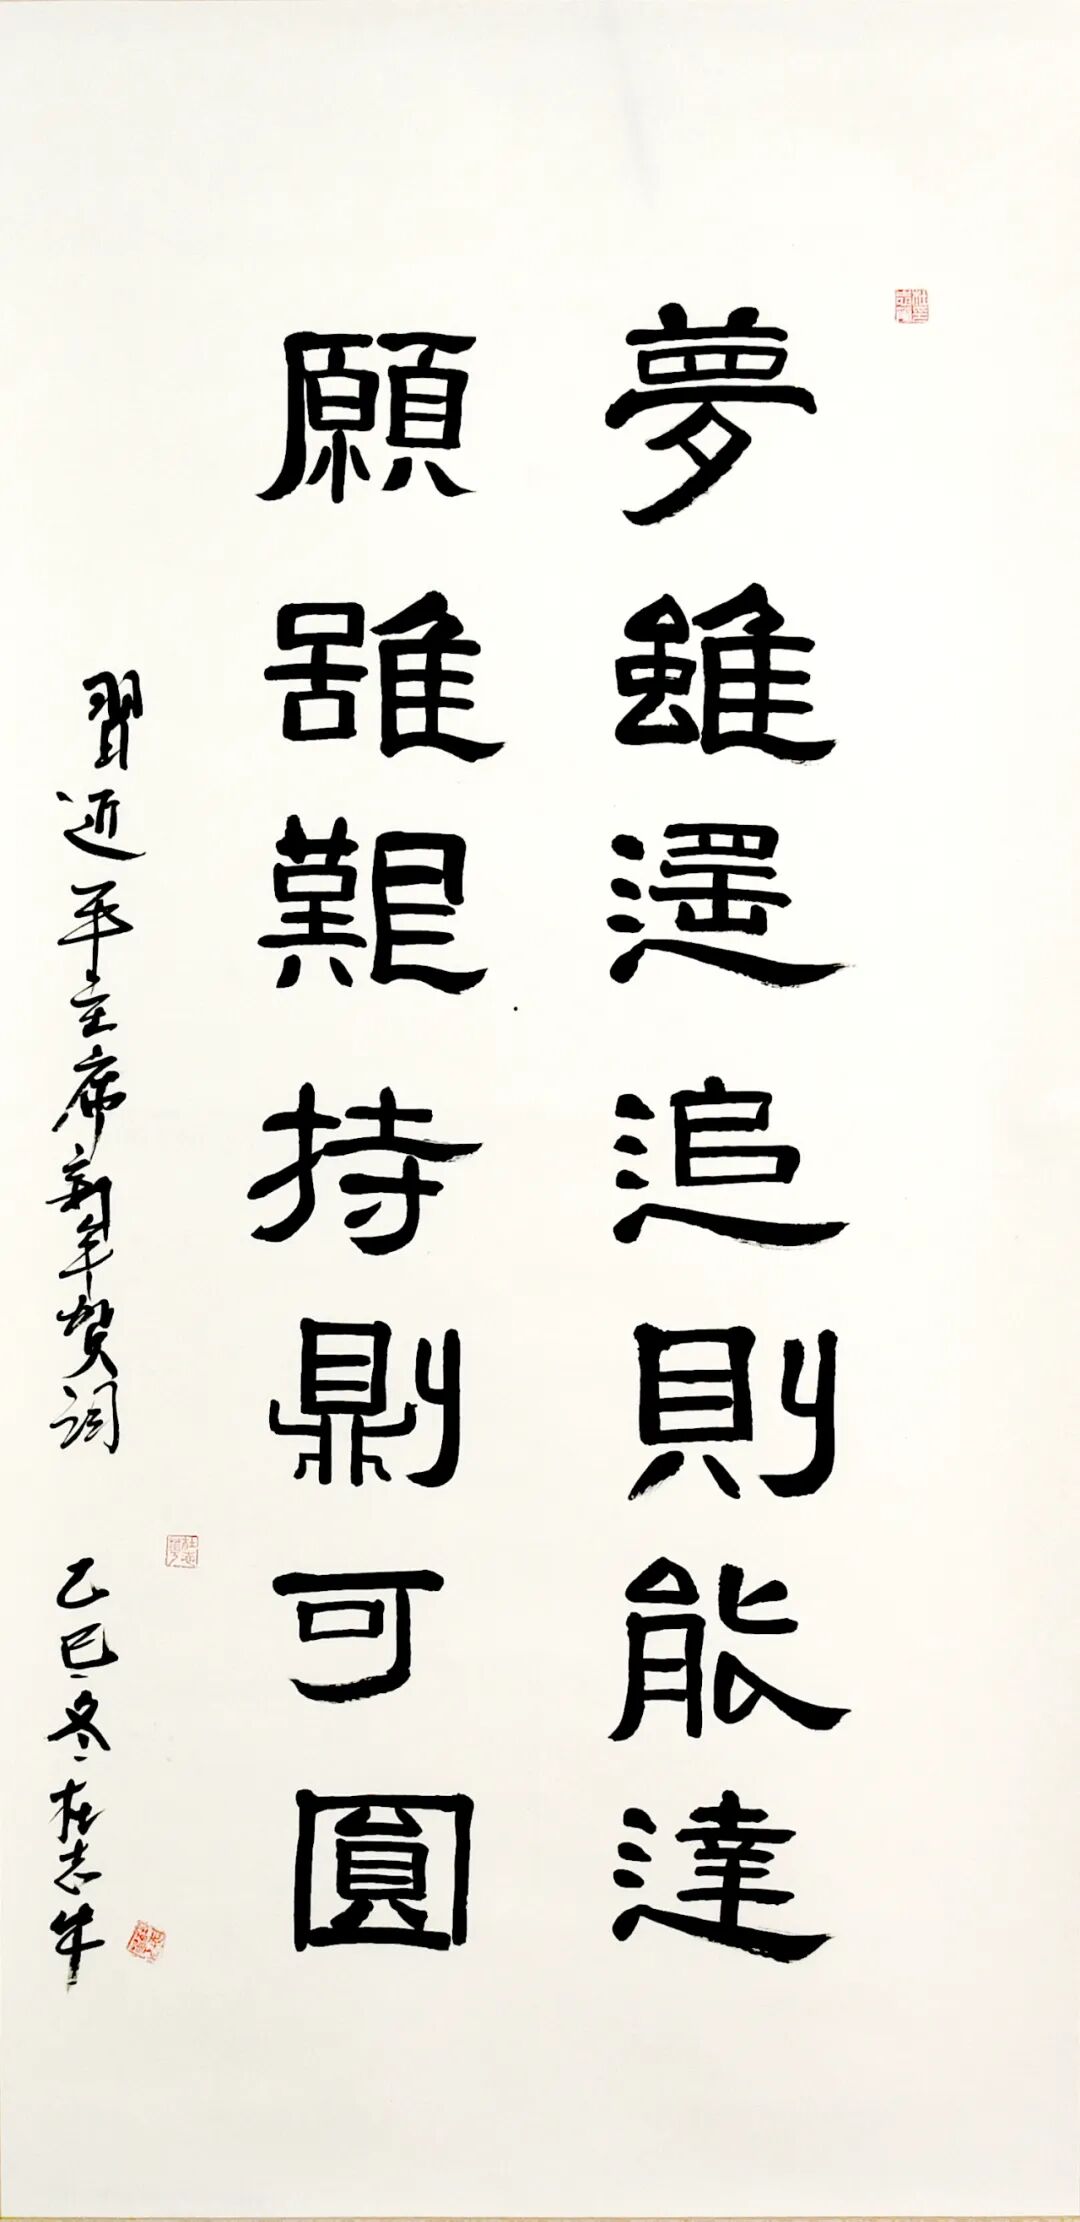 夢雖遥追則能達
願雖艱持則可圓
習近平主席新年贺词
乙巳冬杜志牛